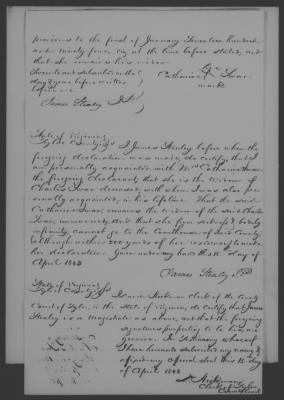 previous to the first of January Seventeen hundred
and ninety four, viz at the time before stated, and
that she remains his widow
Sworn to and subscribed on the
day & year before written
before me
her
Catharine X Swar
mark
James Stealey J.P.
State of Virginia
Tyler County Sct I James Stealey before whom the
foregoing declaration was made, do certify that I
am personally acquainted with Mrs Catharine Swar
the foregoing declarant, that she is the widow of
Charles Swar deceased, with whom I was also per
sonally acquainted, in his lifetime. That the said
Catharine Swar, remains the widow of the said Charles
Swar, unmarried, and that she from bodily
infirmity, cannot go to the Courthouse of this County,
although within 200 yards of her residence to make
her declaration. Given under my hand this 10th day of
April 1843
James Stealey J.P.
State of Virginia
Tyler County Sct I David Hickman Clerk of the County
Court of Tyler, in the State of Virginia, do certify that James
Stealey is a Magistrate as above, and that the foregoing
signature purporting to be his, are
genuine. In testimony whereof
I have hereunto subscribed my name &
affixed my official Seal this 10th day
of April 1843
D Hickman
Clerk of Tyler
County Court